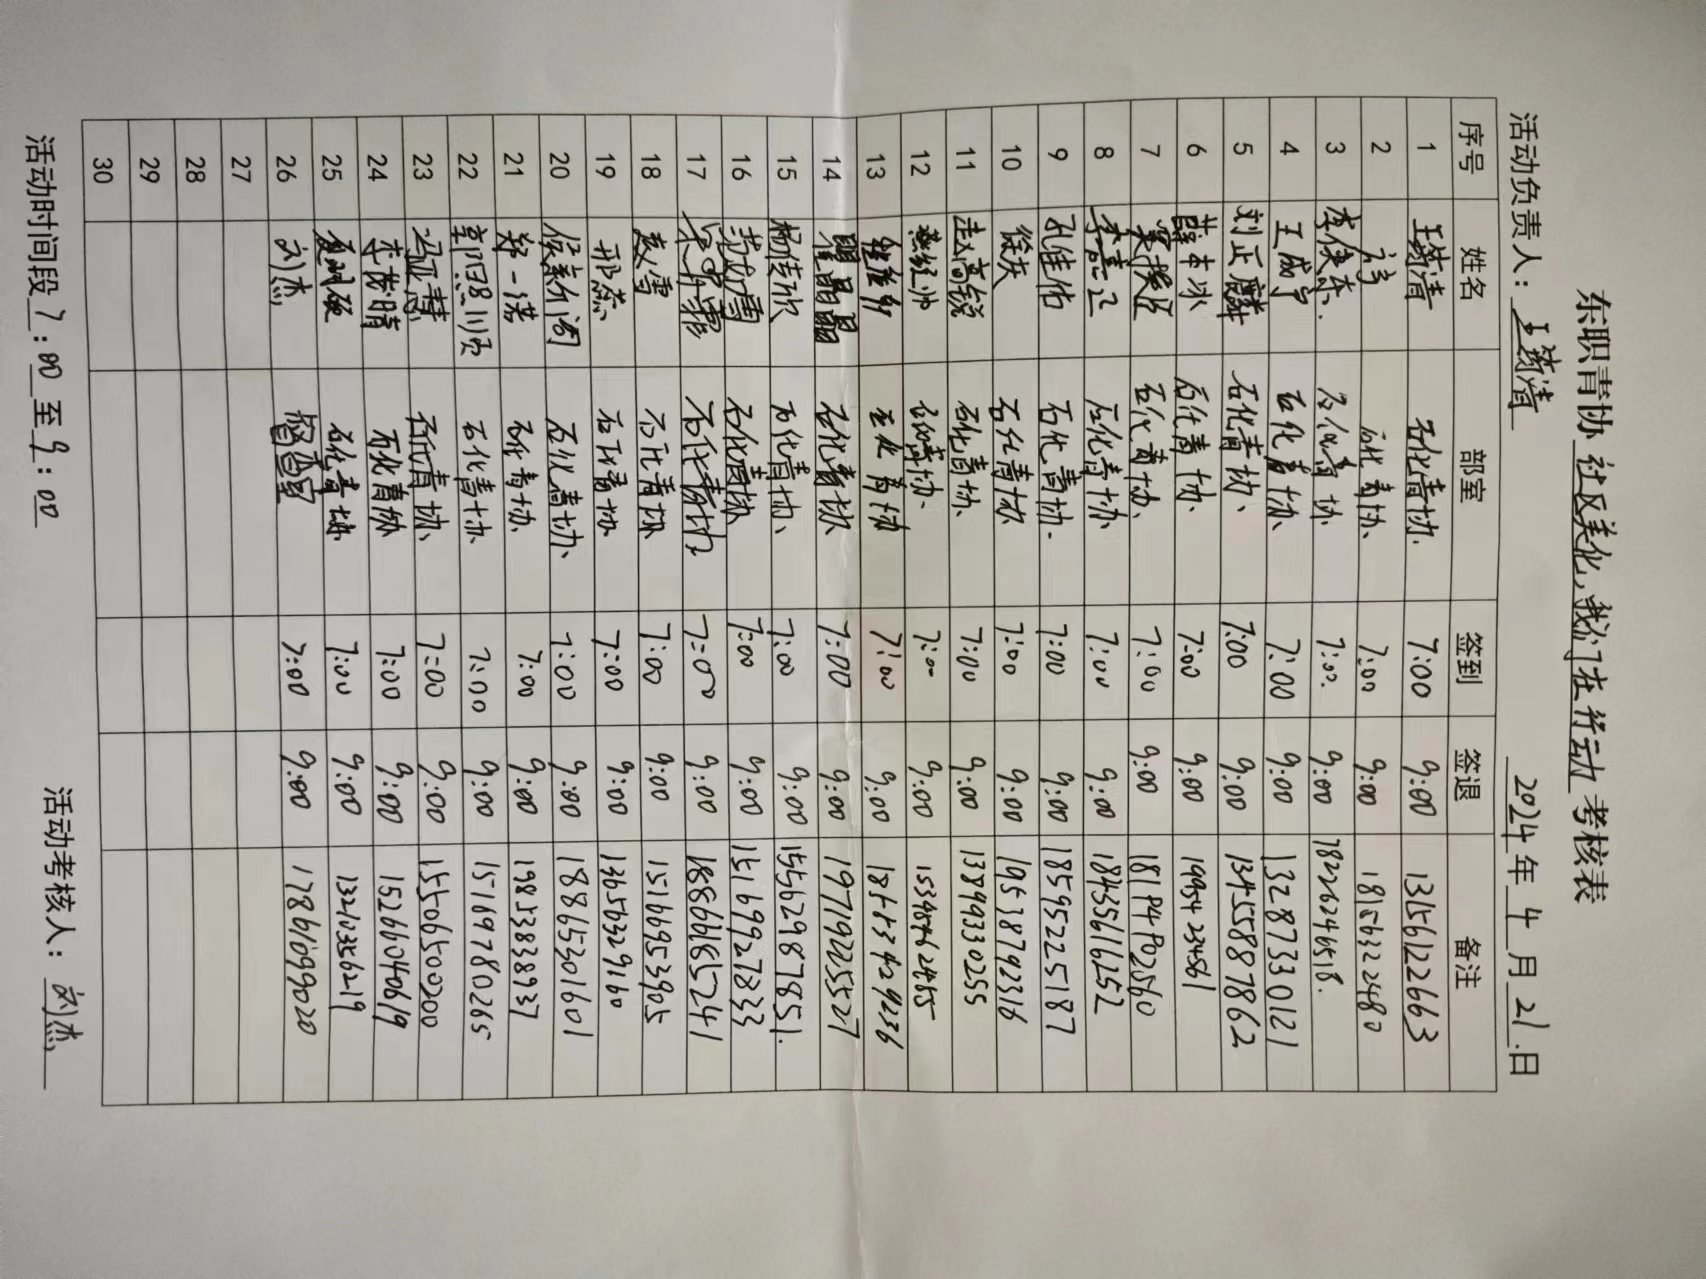 东职青协 社区美化,我们在行动 考核表
活动负责人: 王蓊清 2024 年 4 月 21 日
序号 姓名 部室 签到 签退 备注
1 石化青协 7:00 9:00 13156122663
2 石化青协 7:00 9:00 18156322480
3 石化青协 7:00 9:00
4 王成宁 石化青协 7:00 9:00 13287330121
5 刘正麟 石化青协 7:00 9:00 13455887862
6 薛本冰 石化青协 7:00 9:00 19954234561
7 石化青协 7:00 9:00
8 石化青协 7:00 9:00 18435616252
9 孔佳伟 石化青协 7:00 9:00 18595225187
10 徐兵 石化青协 7:00 9:00 19538792316
11 赵高锐 石化青协 7:00 9:00 13899330255
12 石化青协 7:00 9:00
13 石化青协 7:00 9:00
14 翟晶晶 石化青协 7:00 9:00 19719255527
15 杨佳欣 石化青协 7:00 9:00 15562987851
16 石化青协 7:00 9:00 15169927833
17 石化青协 7:00 9:00 18866685241
18 赵雪 石化青协 7:00 9:00 15166953905
19 邢蕊 石化青协 7:00 9:00 13656329160
20 石化青协 7:00 9:00 18865301601
21 郑一诺 石化青协 7:00 9:00 19853838937
22 石化青协 7:00 9:00 15169780265
23 冯亚慧 石化青协 7:00 9:00 15506500200
24 石化青协 7:00 9:00 15266040619
25 石化青协 7:00 9:00
26 刘杰 7:00 9:00 17861099020
27
28
29
30
活动时间段 7:00 至 9:00 活动考核人: 刘杰